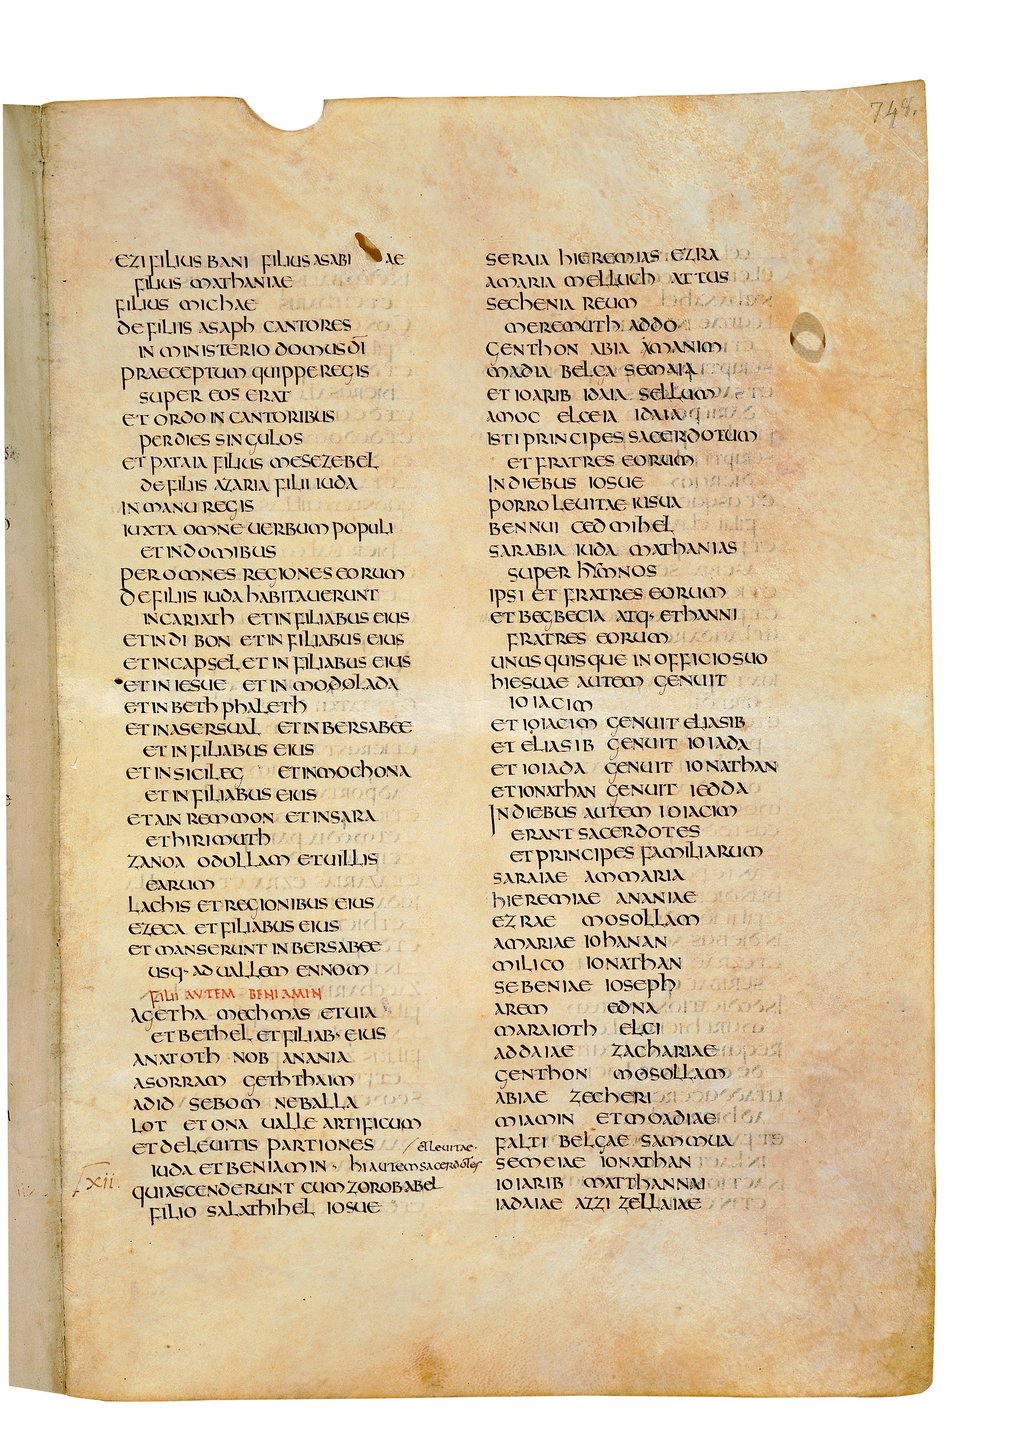 748.
EZI FILIUS BANI FILIUS ASABI AE
FILIUS MATHANIAE
FILIUS MICHAE
DE FILIIS ASAPH CANTORES
IN MINISTERIO DOMUS DI
PRAECEPTUM QUIPPE REGIS
SUPER EOS ERAT
ET ORDO IN CANTORIBUS
PER DIES SINGULOS
ET PATAIA FILIUS MESEZEBEL
DE FILIIS AZARIA FILII IUDA
IN MANU REGIS
IUXTA OMNE UERBUM POPULI
ET IN DOMIBUS
PER OMNES REGIONES EORUM
DE FILIIS IUDA HABITAUERUNT
IN CARIATH ET IN FILIABUS EIUS
ET IN DIBON ET IN FILIABUS EIUS
ET IN CAPSEL ET IN FILIABUS EIUS
ET IN IESUE ET IN MODOLADA
ET IN BETH PHALETH
ET IN ASERSUAL ET IN BERSABEE
ET IN FILIABUS EIUS
ET IN SICILEG ET IN MOCHONA
ET IN FILIABUS EIUS
ET AIN REMMON ET IN SARA
ET HIRIMUTH
ZANOA ODOLLAM ET UILLIS
EARUM
LACHIS ET REGIONIBUS EIUS
EZECA ET FILIABUS EIUS
ET MANSERUNT IN BERSABEE
USQ· AD UALLEM ENNOM
FILII AUTEM BENIAMIN
AGETHA MECHMAS ET UIA
ET BETHEL ET FILIAB· EIUS
ANATOTH NOB ANANIA
ASORRAM GETHTHAIM
ADID SEBOM NEBALLA
LOT ET ONA UALLE ARTIFICUM
ET DE LEUITIS PARTIONES / & LEUITAE·
IUDA ET BENIAMIN · HI AUTEM SACERDOTES
XII.
QUI ASCENDERUNT CUM ZOROBABEL
FILIO SALATHIHEL IOSUE
SERAIA HIEREMIAS EZRA
AMARIA MELLUCH ATTUS
SECHENIA REUM
MEREMUTH ADDO
GENTHON ABIA MANIM
MADIA BELGA SEMAIA
ET IOARIB IDAIA SELLUM
AMOC ELCEIA IDAIA
ISTI PRINCIPES SACERDOTUM
ET FRATRES EORUM
IN DIEBUS IOSUE
PORRO LEUITAE IUSUA
BENNUI CEDMIHEL
SARABIA IUDA MATHANIAS
SUPER HYMNOS
IPSI ET FRATRES EORUM
ET BEGBECIA ATQ· ET HANNI
FRATRES EORUM
UNUSQUISQUE IN OFFICIO SUO
HIESUAE AUTEM GENUIT
IOIACIM
ET IOIACIM GENUIT ELIASIB
ET ELIASIB GENUIT IOIADA
ET IOIADA GENUIT IONATHAN
ET IONATHAN GENUIT IEDDA
IN DIEBUS AUTEM IOIACIM
ERANT SACERDOTES
ET PRINCIPES FAMILIARUM
SARAIAE AMMARIA
HIEREMIAE ANANIAE
EZRAE MOSOLLAM
AMARIAE IOHANAN
MILICO IONATHAN
SEBENIAE IOSEPH
AREM EDNA
MARAIOTH ELCI
ADDAIAE ZACHARIAE
GENTHON MOSOLLAM
ABIAE ZECHERI
MIAMIN ET MOADIAE
FALTI BELGAE SAMMUA
SEMEIAE IONATHAN
IOIARIB MATTHANNAI
IADAIAE AZZI ZELLAIAE